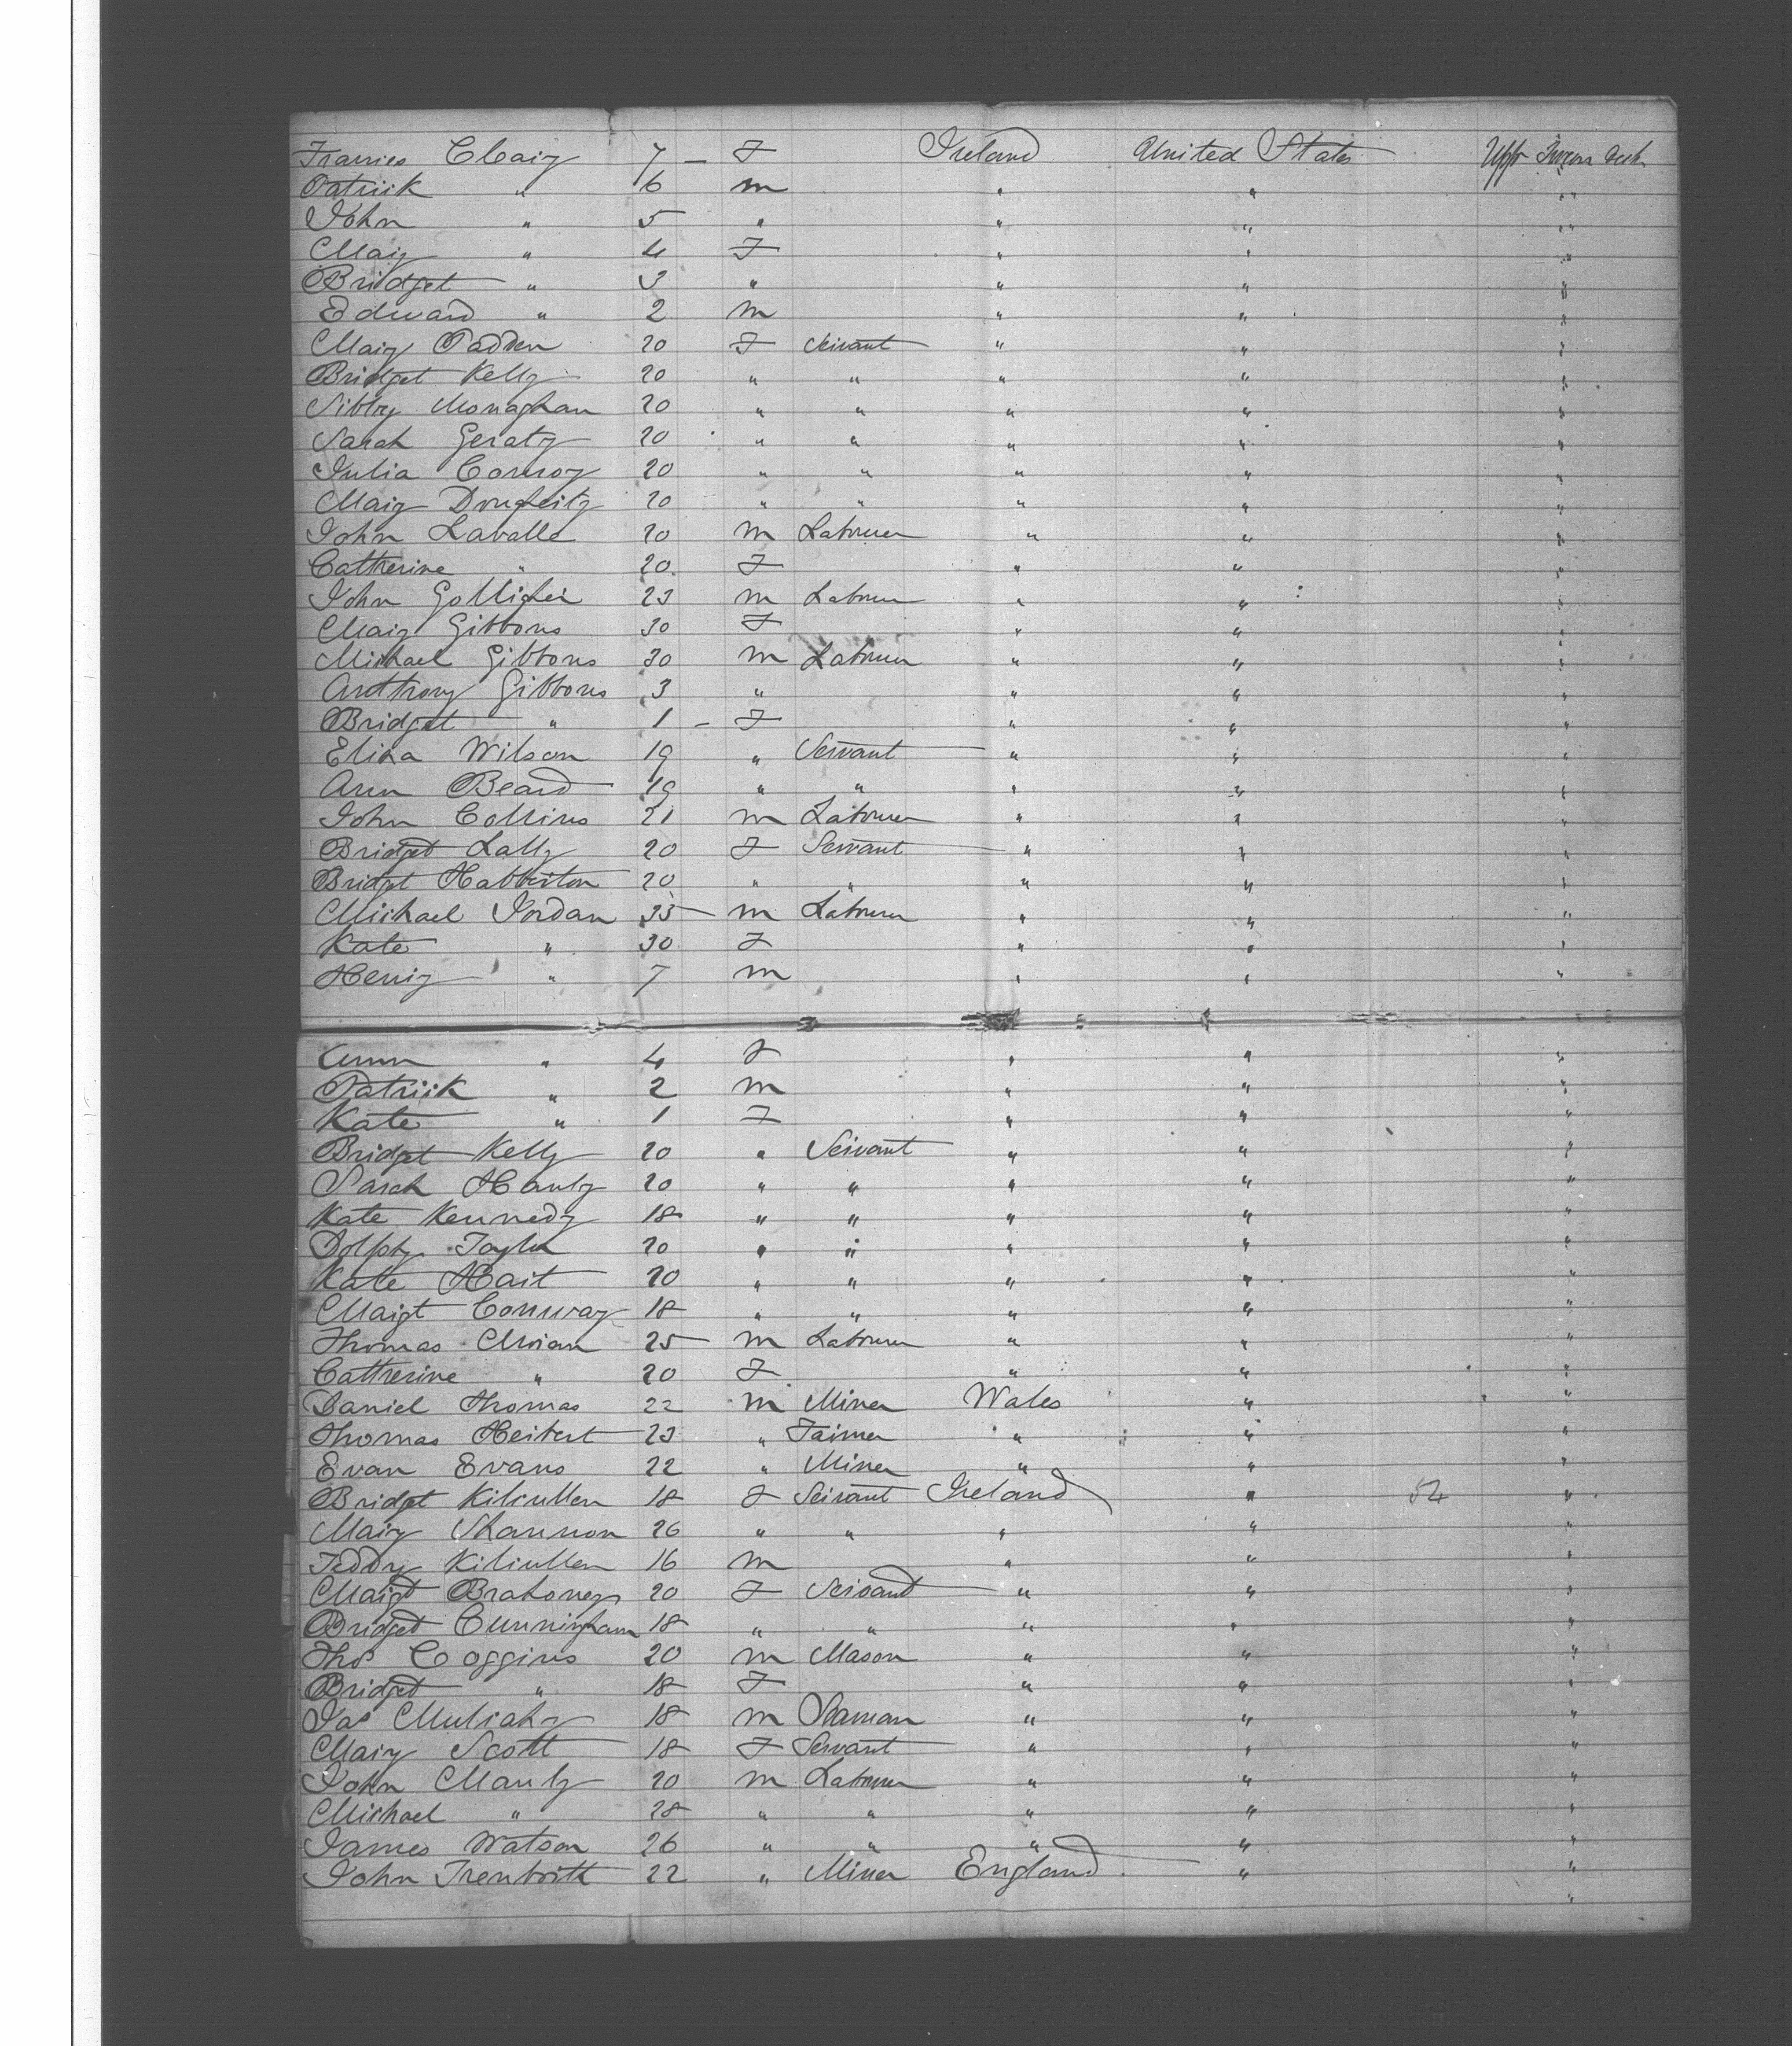 Frances Clary 7 – F Ireland United States Upr Tween Deck
Patrick " 6 m " " "
John " 5 " " " "
Mary " 4 F " " "
Bridget " 3 " " " "
Edward " 2 m " " "
Mary Padden 20 F Servant " " "
Bridget Kelly 20 " " " " "
Sibby Monaghan 20 " " " " "
Sarah Geraty 20 " " " " "
Julia Conroy 20 " " " " "
Mary Dougherty 20 " " " " "
John Lavalle 20 m Labourer " " "
Catherine " 20 F " " "
John Golligher 23 m Labourer " " "
Mary Gibbons 30 F " " "
Michael Gibbons 30 m Labourer " " "
Anthony Gibbons 3 " " " "
Bridget " 1 – F " " "
Eliza Wilson 19 " Servant " " "
Ann Beard 19 " " " " "
John Collins 21 m Labourer " " "
Bridget Lally 20 F Servant " " "
Bridget Habberton 20 " " " " "
Michael Jordan 35 m Labourer " " "
Kate " 30 F " " "
Henry " 7 m " " "
Ann " 4 F " " "
Patrick " 2 m " " "
Kate " 1 F " " "
Bridget Kelly 20 " Servant " " "
Sarah Hanly 20 " " " " "
Kate Kennedy 18 " " " " "
Dolphy Taylor 20 " " " " "
Kate Hart 20 " " " " "
Margt Conway 18 " " " " "
Thomas Moran 25 m Labourer " " "
Catherine " 20 F " " "
Daniel Thomas 22 m Miner Wales " "
Thomas Herbert 23 " Farmer " " "
Evan Evans 22 " Miner " " "
Bridget Kilcullen 18 F Servant Ireland " 54 "
Mary Shannon 26 " " " " "
Teddy Kilcullen 16 m " " "
Margt Brahoney 20 F Servant " " "
Bridget Cunningham 18 " " " " "
Thos Coggins 20 m Mason " " "
Bridget " 18 F " " "
Jas Mulcahy 18 m Seaman " " "
Mary Scott 18 F Servant " " "
John Manly 20 m Labourer " " "
Michael " 28 " " " " "
James Watson 26 " " " " "
John Trenbrith 22 " Miner England " "
"